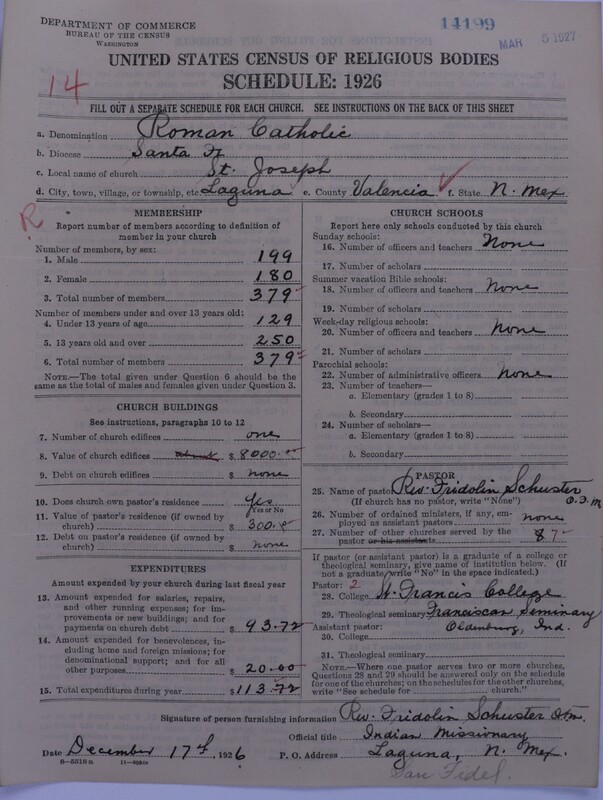 DEPARTMENT OF COMMERCE
BUREAU OF THE CENSUS
WASHINGTON
14199
MAR 5 1927
UNITED STATES CENSUS OF RELIGIOUS BODIES
SCHEDULE: 1926
14
FILL OUT A SEPARATE SCHEDULE FOR EACH CHURCH. SEE INSTRUCTIONS ON THE BACK OF THIS SHEET
a. Denomination Roman Catholic
b. Diocese Santa Fe
c. Local name of church St. Joseph
d. City, town, village, or township, etc. Laguna e. County Valencia f. State N. Mex.
R
MEMBERSHIP
Report number of members according to definition of member in your church
Number of members, by sex:
1. Male 199
2. Female 180
3. Total number of members 379
Number of members under and over 13 years old:
4. Under 13 years of age 129
5. 13 years old and over 250
6. Total number of members 379
NOTE.—The total given under Question 6 should be the
same as the total of males and females given under Question 3.
CHURCH BUILDINGS
See instructions, paragraphs 10 to 12
7. Number of church edifices one
8. Value of church edifices $ 8000.
9. Debt on church edifices $ none
10. Does church own pastor's residence Yes
Yes or No
11. Value of pastor's residence (if owned by
church) $ 300.
12. Debt on pastor's residence (if owned by
church) $ none
EXPENDITURES
Amount expended by your church during last fiscal year
13. Amount expended for salaries, repairs,
and other running expenses; for im-
provements or new buildings; and for
payments on church debt $ 93.72
14. Amount expended for benevolences, in-
cluding home and foreign missions; for
denominational support; and for all
other purposes $ 20.00
15. Total expenditures during year $ 113.72
CHURCH SCHOOLS
Report here only schools conducted by this church
Sunday schools:
16. Number of officers and teachers None
17. Number of scholars
Summer vacation Bible schools:
18. Number of officers and teachers None
19. Number of scholars
Week-day religious schools:
20. Number of officers and teachers None
21. Number of scholars
Parochial schools:
22. Number of administrative officers None
23. Number of teachers—
a. Elementary (grades 1 to 8)
b. Secondary
24. Number of scholars—
a. Elementary (grades 1 to 8)
b. Secondary
PASTOR
25. Name of pastor Rev. Fridolin Schuster
(If church has no pastor, write "None") O.F.M.
26. Number of ordained ministers, if any, em-
ployed as assistant pastors none
27. Number of other churches served by the
pastor or his assistants 8 7
If pastor (or assistant pastor) is a graduate of a college or
theological seminary, give name of institution below. (If
not a graduate write "No" in the space indicated.)
Pastor: 2
28. College St. Francis College
29. Theological seminary Franciscan Seminary
Assistant pastor: Oldenburg, Ind.
30. College
31. Theological seminary
NOTE.—Where one pastor serves two or more churches,
Questions 28 and 29 should be answered only on the schedule
for one of the churches; on the schedules for the other churches,
write "See schedule for church."
Signature of person furnishing information Rev. Fridolin Schuster O.F.M.
Official title Indian Missionary
Date December 17th, 1926 P. O. Address Laguna, N. Mex.
San Fidel.